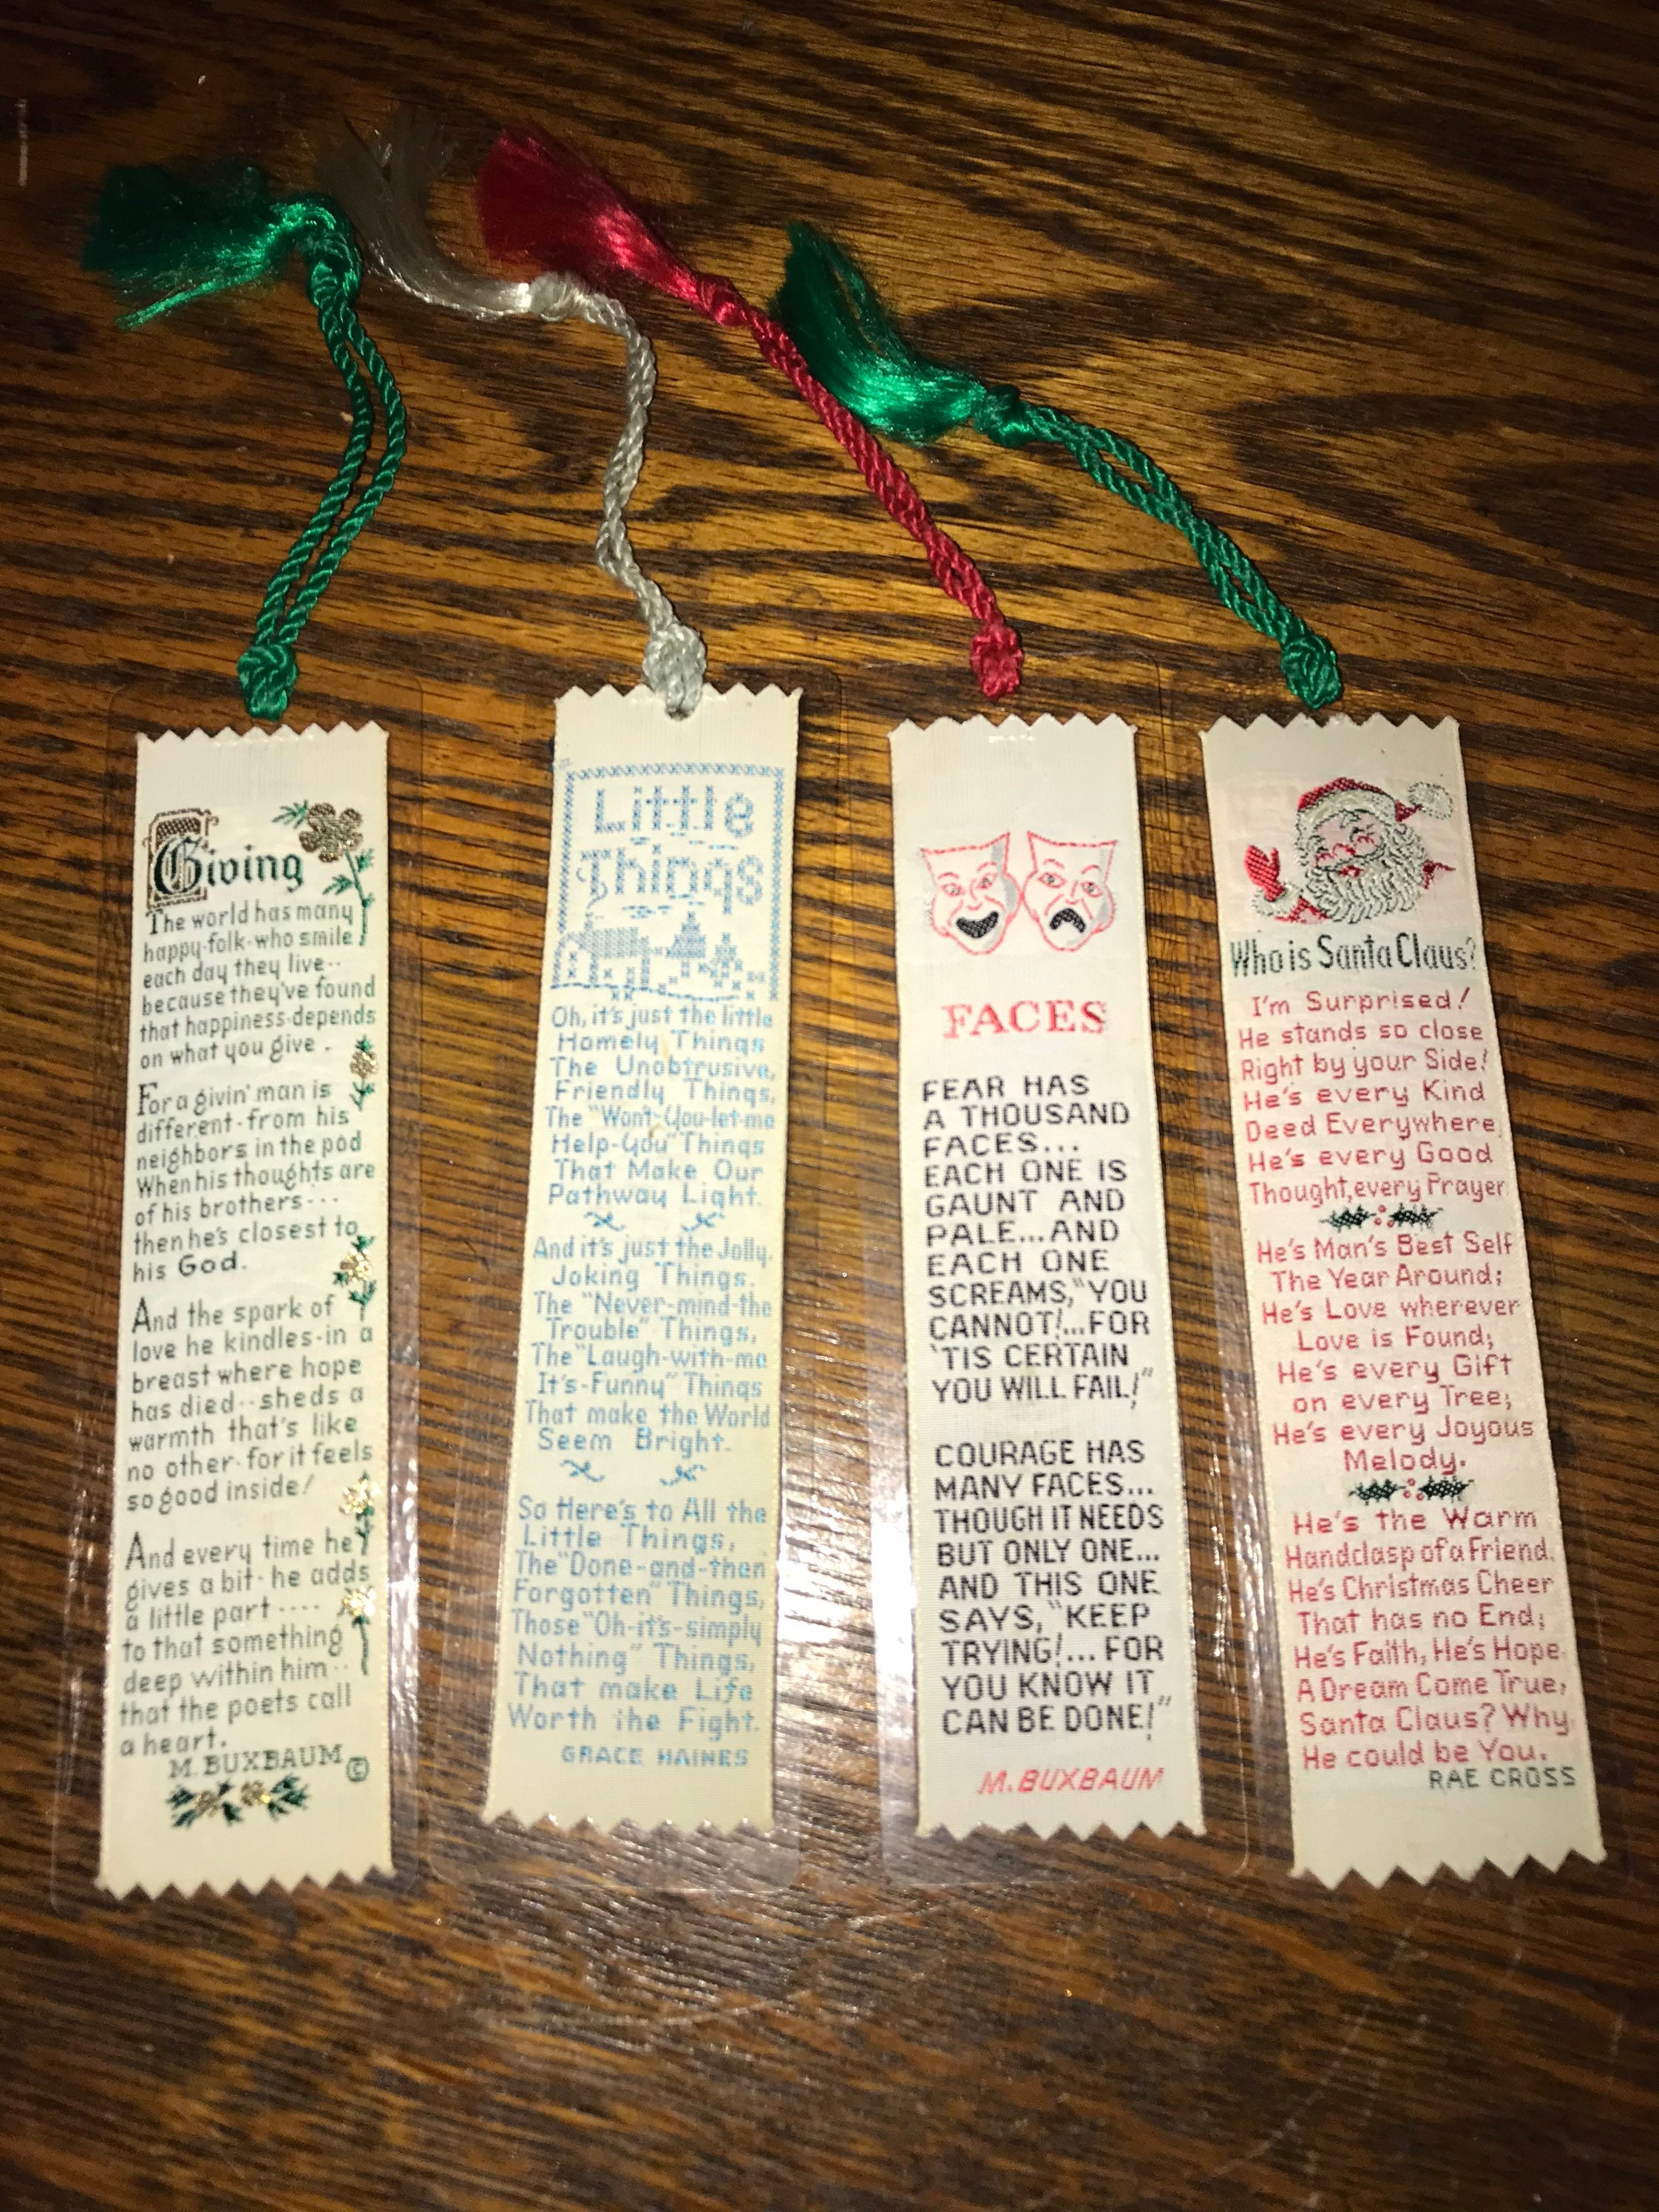 Giving
The world has many
happy-folk-who smile
each day they live--
because they've found
that happiness-depends
on what you give.
For a givin' man is
different-from his
neighbors in the pod
When his thoughts are
of his brothers---
then he's closest to
his God.
And the spark of
love he kindles-in a
breast where hope
has died--sheds a
warmth that's like
no other-for it feels
so good inside!
And every time he
gives a bit-he adds
a little part----
to that something
deep within him--
that the poets call
a heart.
M. BUXBAUM ©
Little
Things
Oh, it's just the little
Homely Things
The Unobtrusive,
Friendly Things,
The "Won't-You-let-me
Help-You" Things
That Make Our
Pathway Light.
And it's just the Jolly,
Joking Things.
The "Never-mind-the
Trouble" Things,
The "Laugh-with-me
It's-Funny" Things
That make the World
Seem Bright.
So Here's to All the
Little Things,
The "Done-and-then
Forgotten" Things,
Those "Oh-it's-simply
Nothing" Things,
That make Life
Worth the Fight.
GRACE HAINES
FACES
FEAR HAS
A THOUSAND
FACES...
EACH ONE IS
GAUNT AND
PALE...AND
EACH ONE
SCREAMS, "YOU
CANNOT!...FOR
'TIS CERTAIN
YOU WILL FAIL!"
COURAGE HAS
MANY FACES...
THOUGH IT NEEDS
BUT ONLY ONE...
AND THIS ONE
SAYS, "KEEP
TRYING!...FOR
YOU KNOW IT
CAN BE DONE!"
M. BUXBAUM
Who is Santa Claus?
I'm Surprised!
He stands so close
Right by your Side!
He's every Kind
Deed Everywhere
He's every Good
Thought, every Prayer
He's Man's Best Self
The Year Around;
He's Love wherever
Love is Found;
He's every Gift
on every Tree;
He's every Joyous
Melody.
He's the Warm
Handclasp of a Friend,
He's Christmas Cheer
That has no End;
He's Faith, He's Hope
A Dream Come True,
Santa Claus? Why,
He could be You.
RAE CROSS